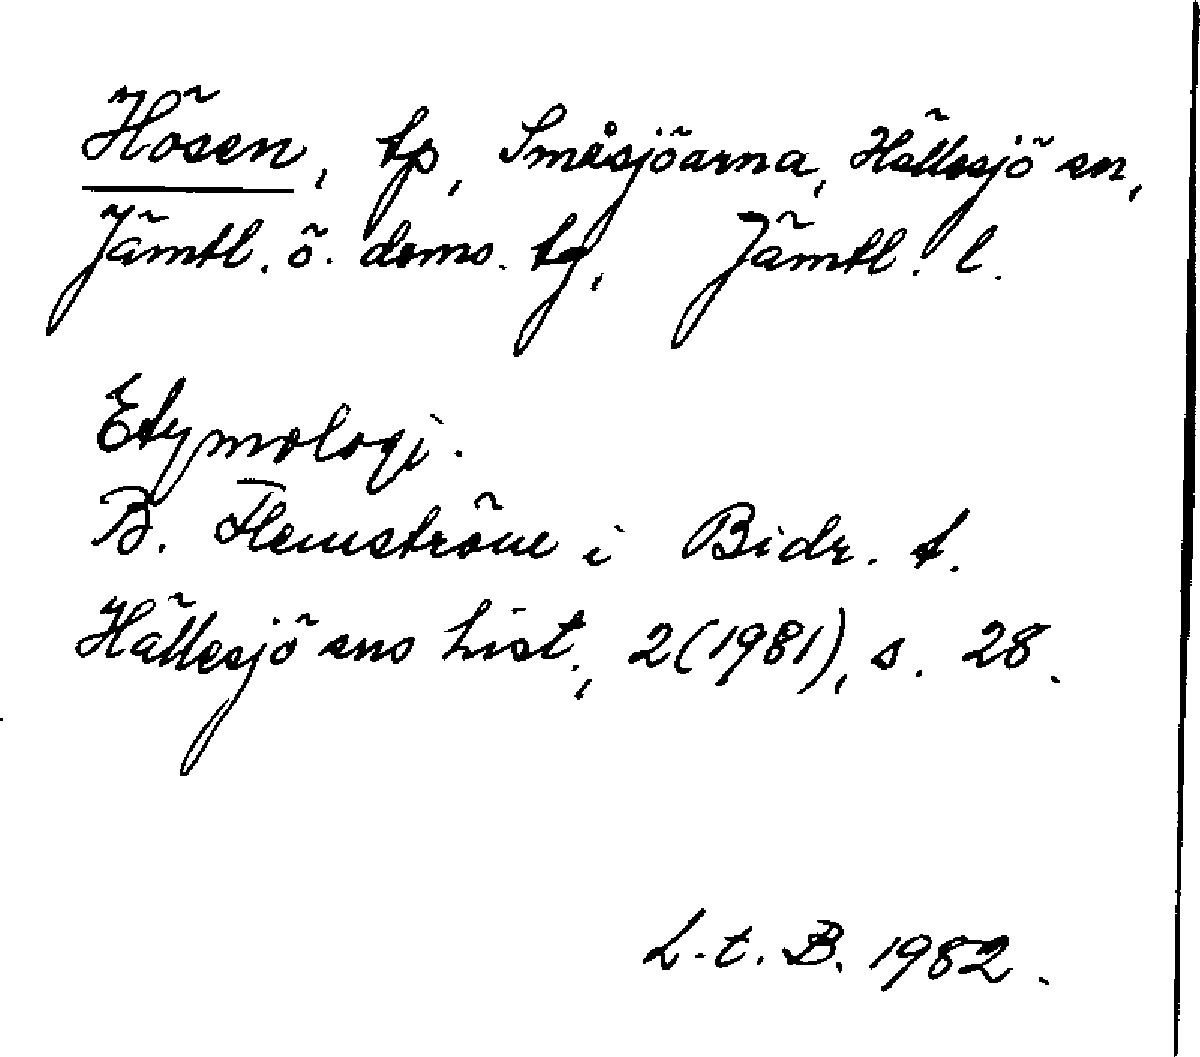 Hösen, tp, Småsjöarna, Hällesjö sn,
Jämtl. ö. doms. tg, Jämtl. l.
Etymologi.
B. Flemström i Bidr. t.
Hällesjö sns hist., 2(1981), s. 28.
L.t.B. 1982.